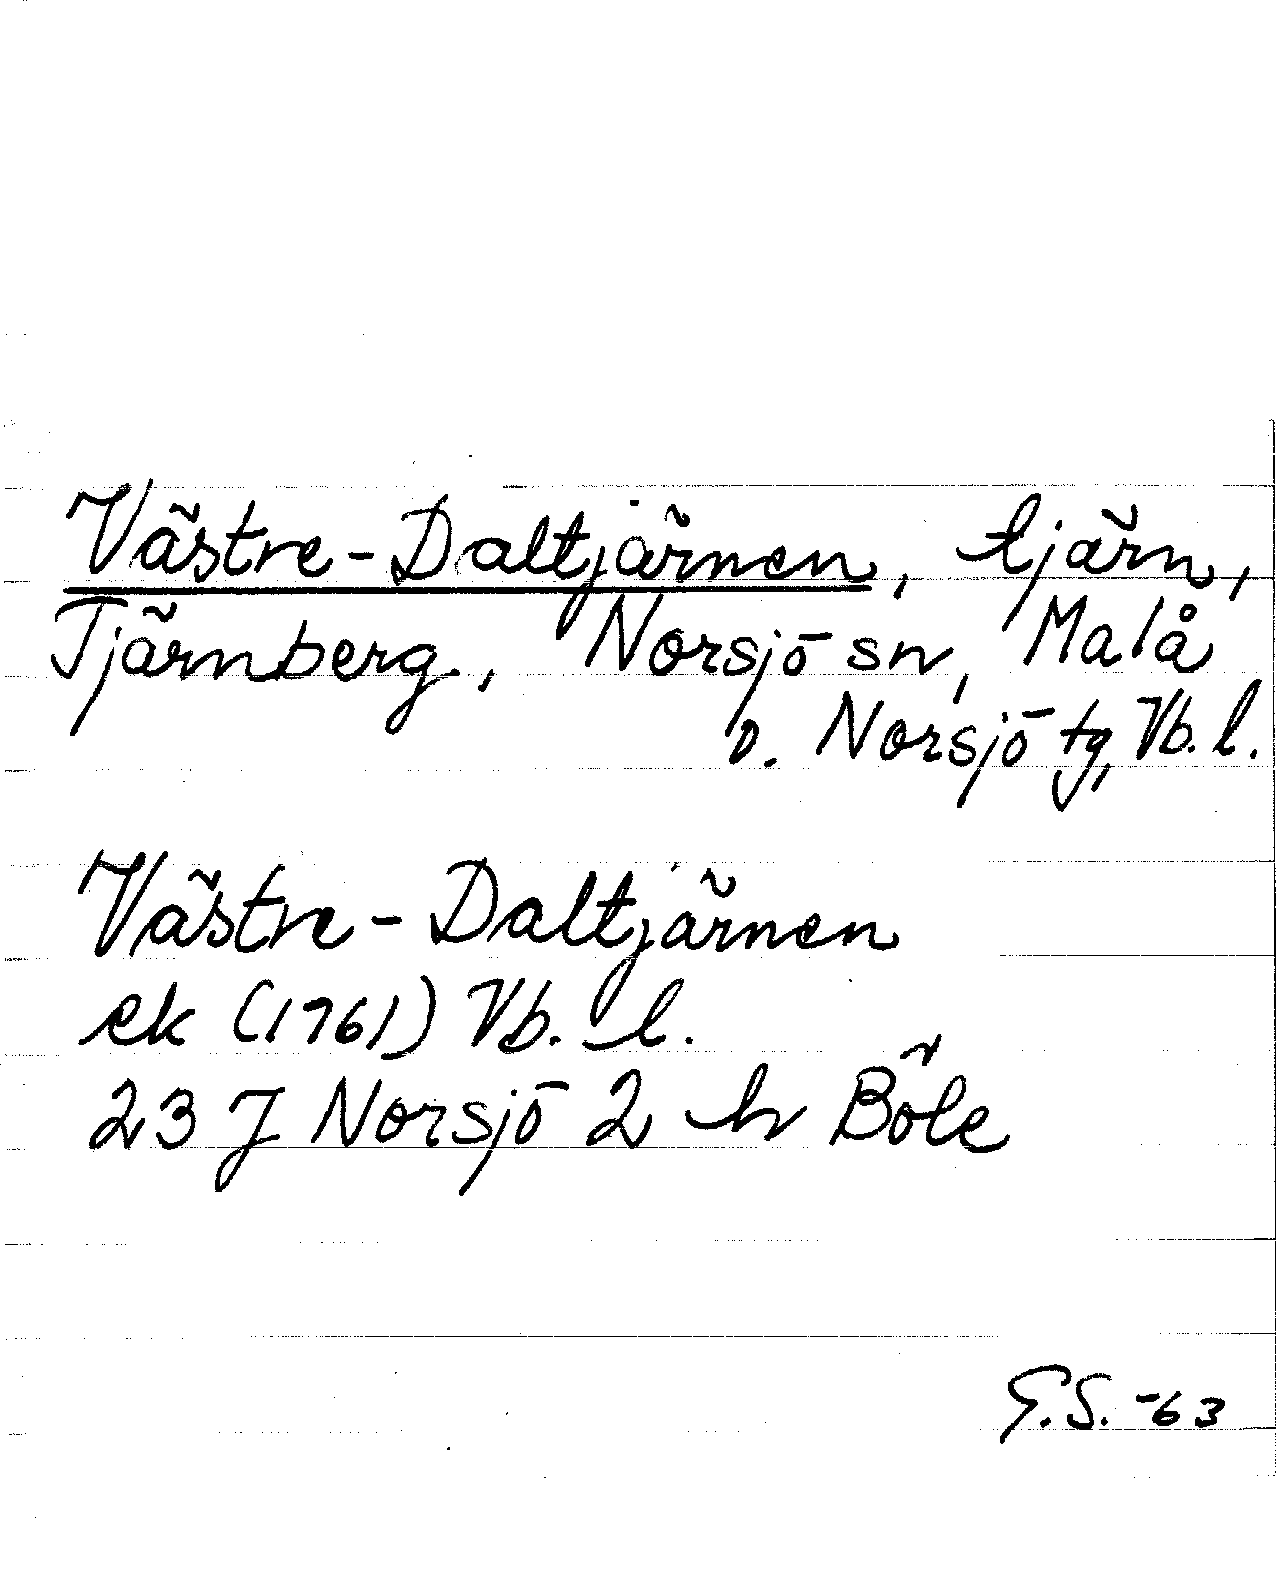 Västre-Daltjärnen, tjärn,
Tjärnberg, Norsjö sn, Malå
o. Norsjö tg, Vb. l.
Västre-Daltjärnen
ek (1961) Vb. l.
23 J Norsjö 2 h Böle
G.S. -63